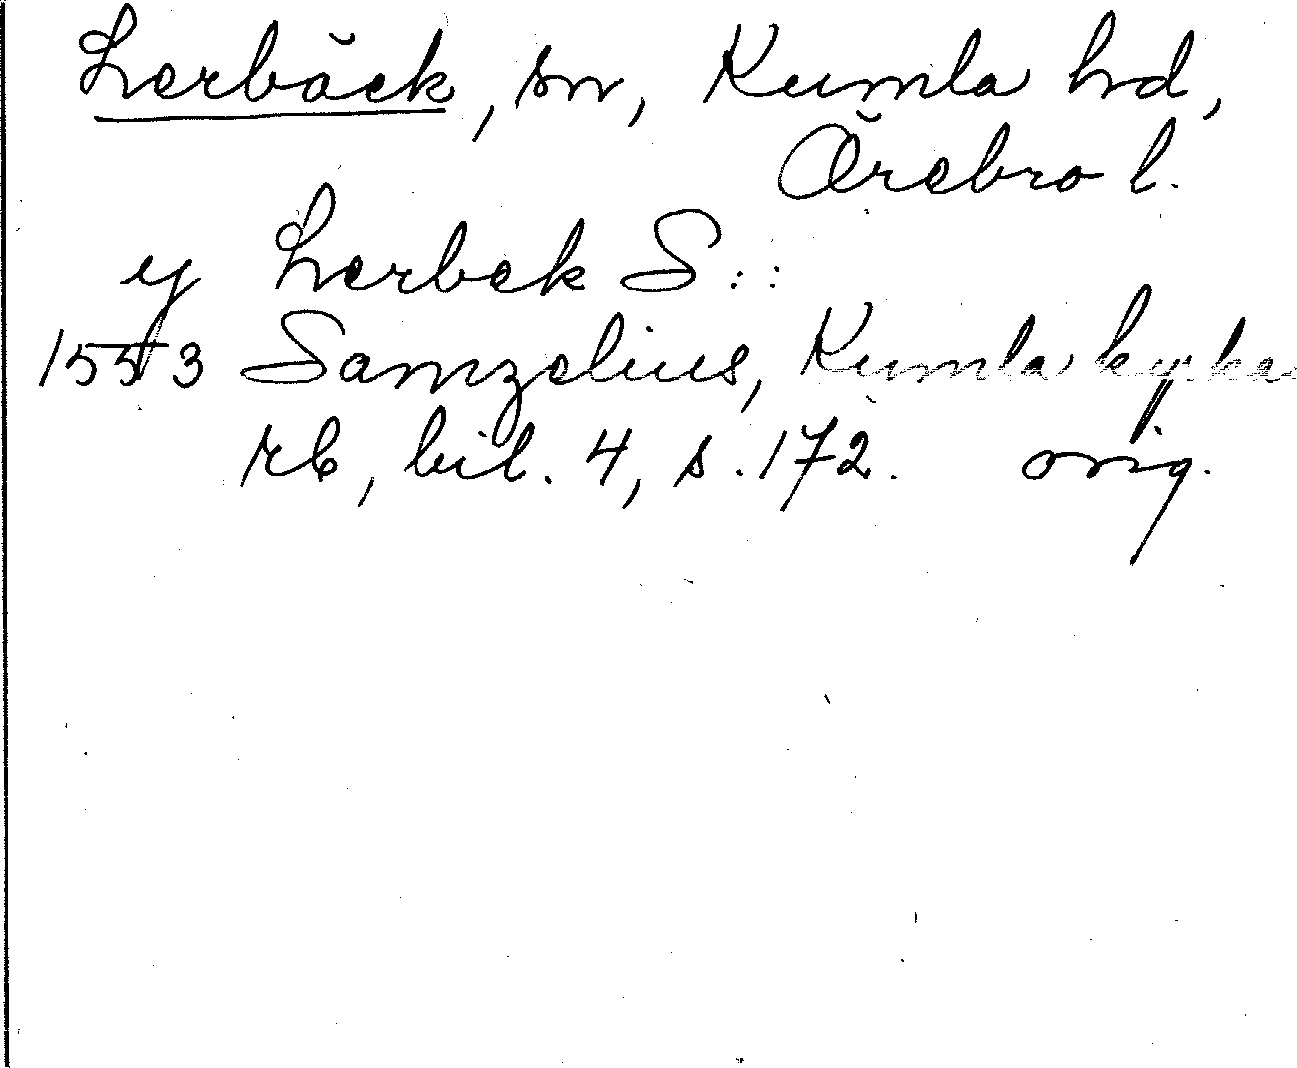 Lerbäck, sn, Kumla hd,
Örebro l.
y Lerbek S::
1553 Samzelius, Kumla kyrka
rb, bil. 4, s. 172. orig.